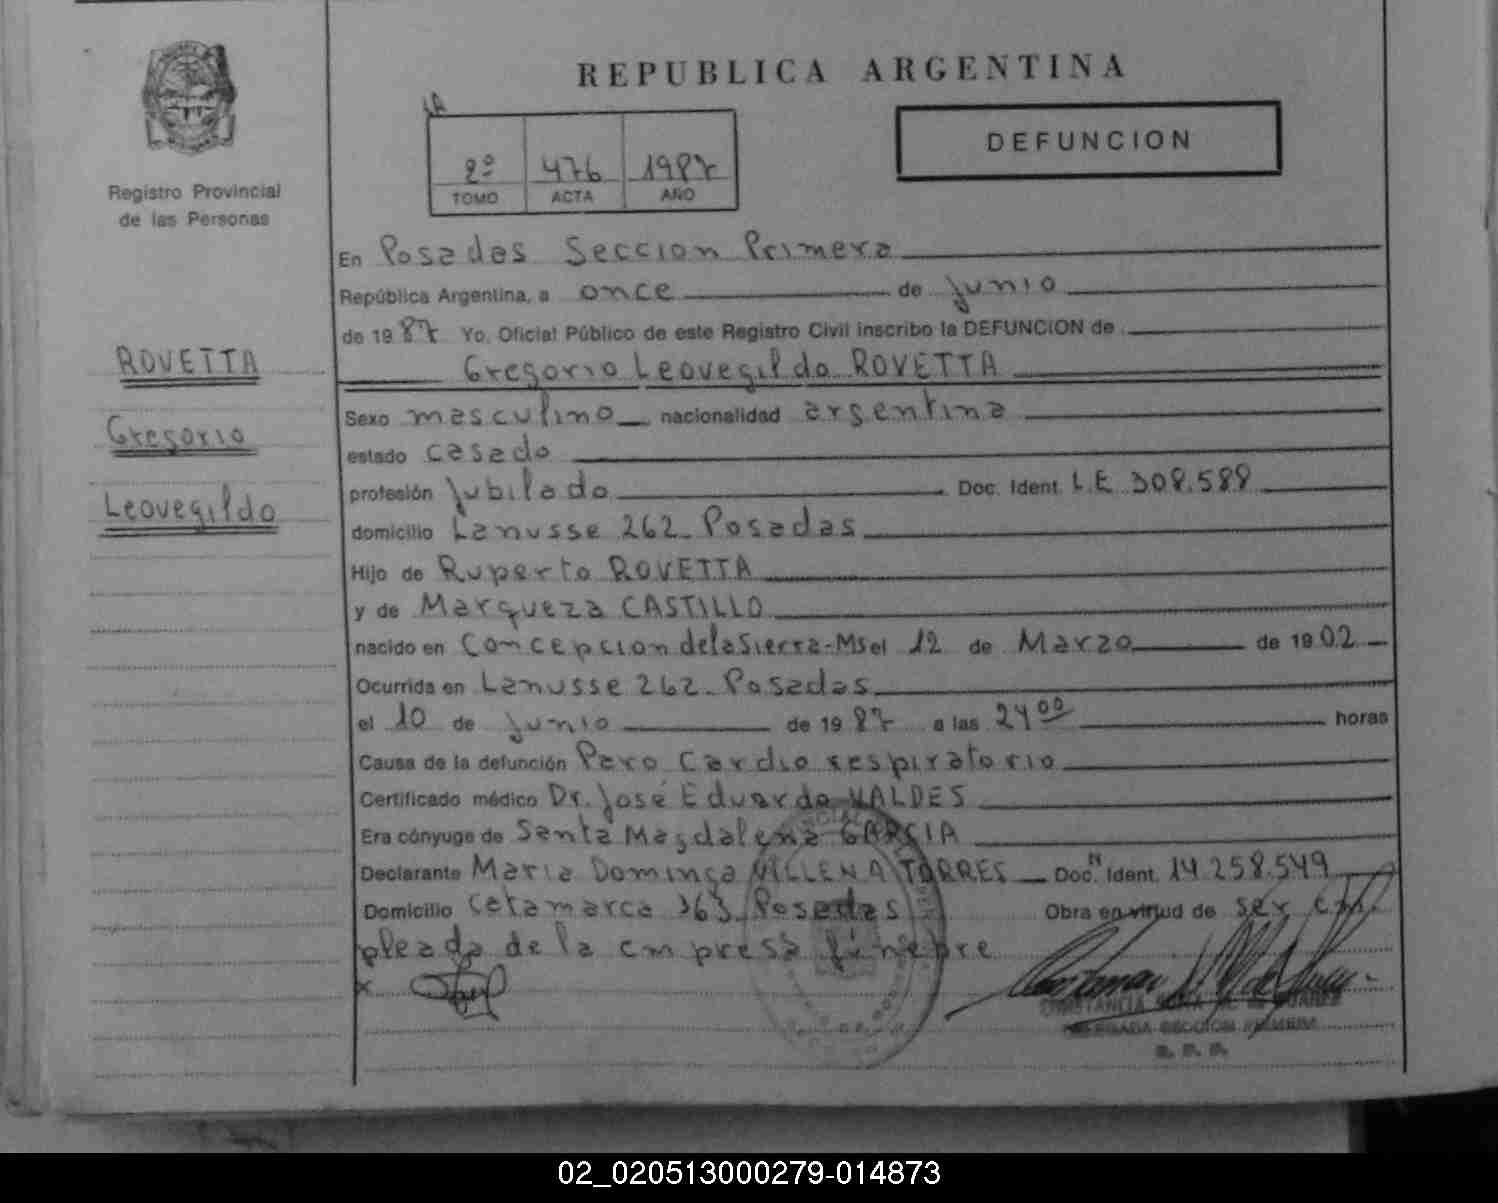 REPUBLICA ARGENTINA
1A
2º 476 1987
TOMO ACTA AÑO
DEFUNCION
Registro Provincial
de las Personas
ROVETTA
Gregorio
Leovegildo
En Posadas Seccion Primera
República Argentina, a once de junio
de 1987 Yo, Oficial Público de este Registro Civil inscribo la DEFUNCION de
Gregorio Leovegildo ROVETTA
Sexo masculino nacionalidad argentina
estado casado
profesión jubilado Doc. Ident. L.E 308.588
domicilio Lanusse 262 Posadas
Hijo de Ruperto ROVETTA
y de Marqueza CASTILLO
nacido en Concepcion de la Sierra-Ms el 12 de Marzo de 1902
Ocurrida en Lanusse 262 Posadas
el 10 de junio de 1987 a las 24 00 horas
Causa de la defunción Paro Cardio respiratorio
Certificado médico Dr. José Eduardo VALDES
Era cónyuge de Santa Magdalena GARCIA
Declarante Maria Dominga VILLENA TORRES Doc. N Ident. 14.258.549
Domicilio Catamarca 363 Posadas Obra en virtud de ser em
pleada de la empresa fúnebre
x
DELEGADA SECCION PRIMERA
R. P. P.
02_020513000279-014873